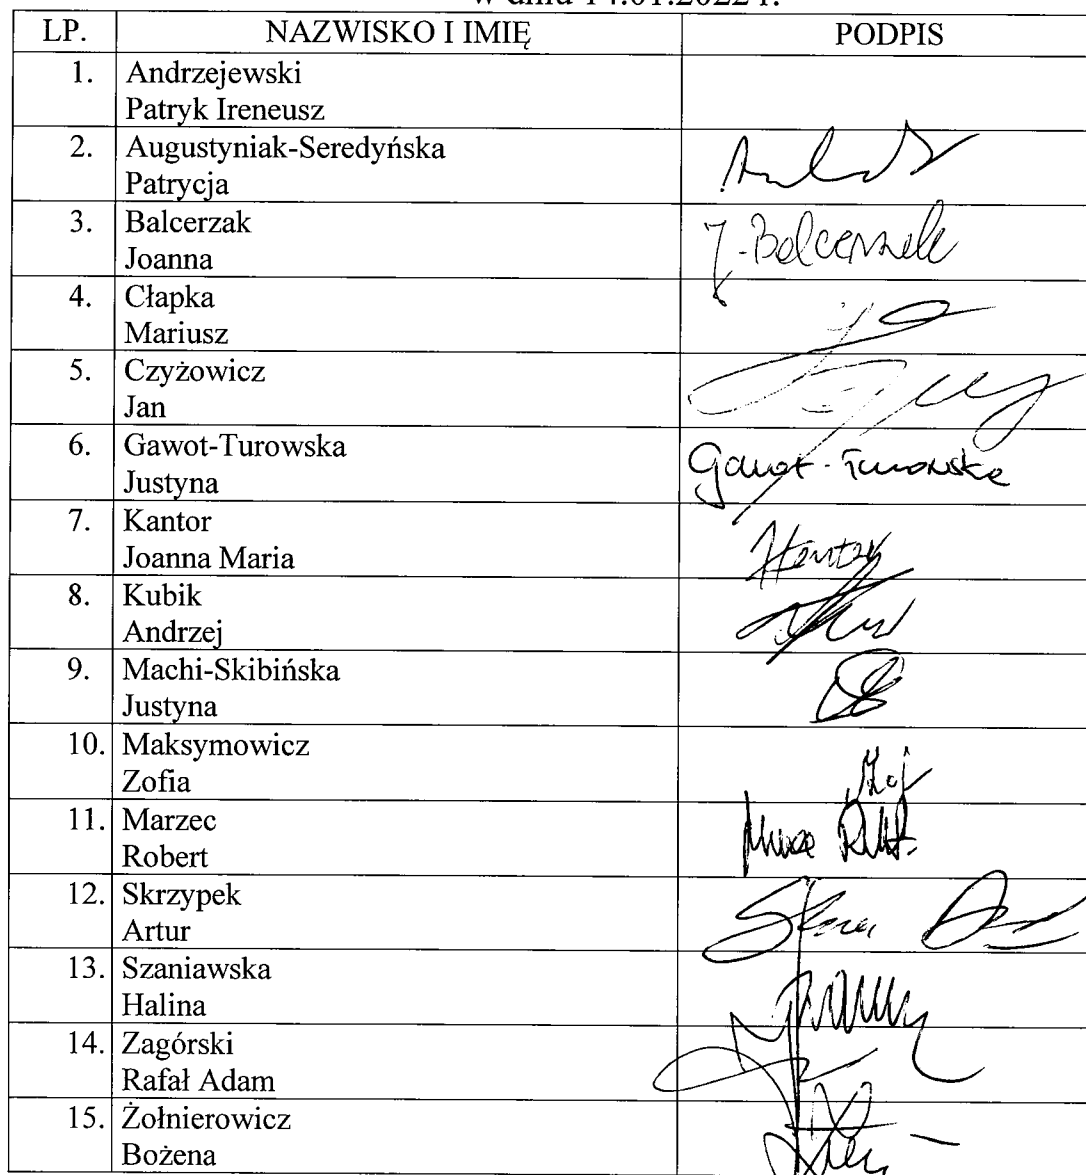 w dniu 14.01.2022 r.
LP. NAZWISKO I IMIĘ PODPIS
1. Andrzejewski
Patryk Ireneusz
2. Augustyniak-Seredyńska
Patrycja
3. Balcerzak
Joanna
J. Balcerzak
4. Cłapka
Mariusz
5. Czyżowicz
Jan
6. Gawot-Turowska
Justyna
Gawot-Turowska
7. Kantor
Joanna Maria
Kantor
8. Kubik
Andrzej
9. Machi-Skibińska
Justyna
10. Maksymowicz
Zofia
11. Marzec
Robert
12. Skrzypek
Artur
13. Szaniawska
Halina
14. Zagórski
Rafał Adam
15. Żołnierowicz
Bożena